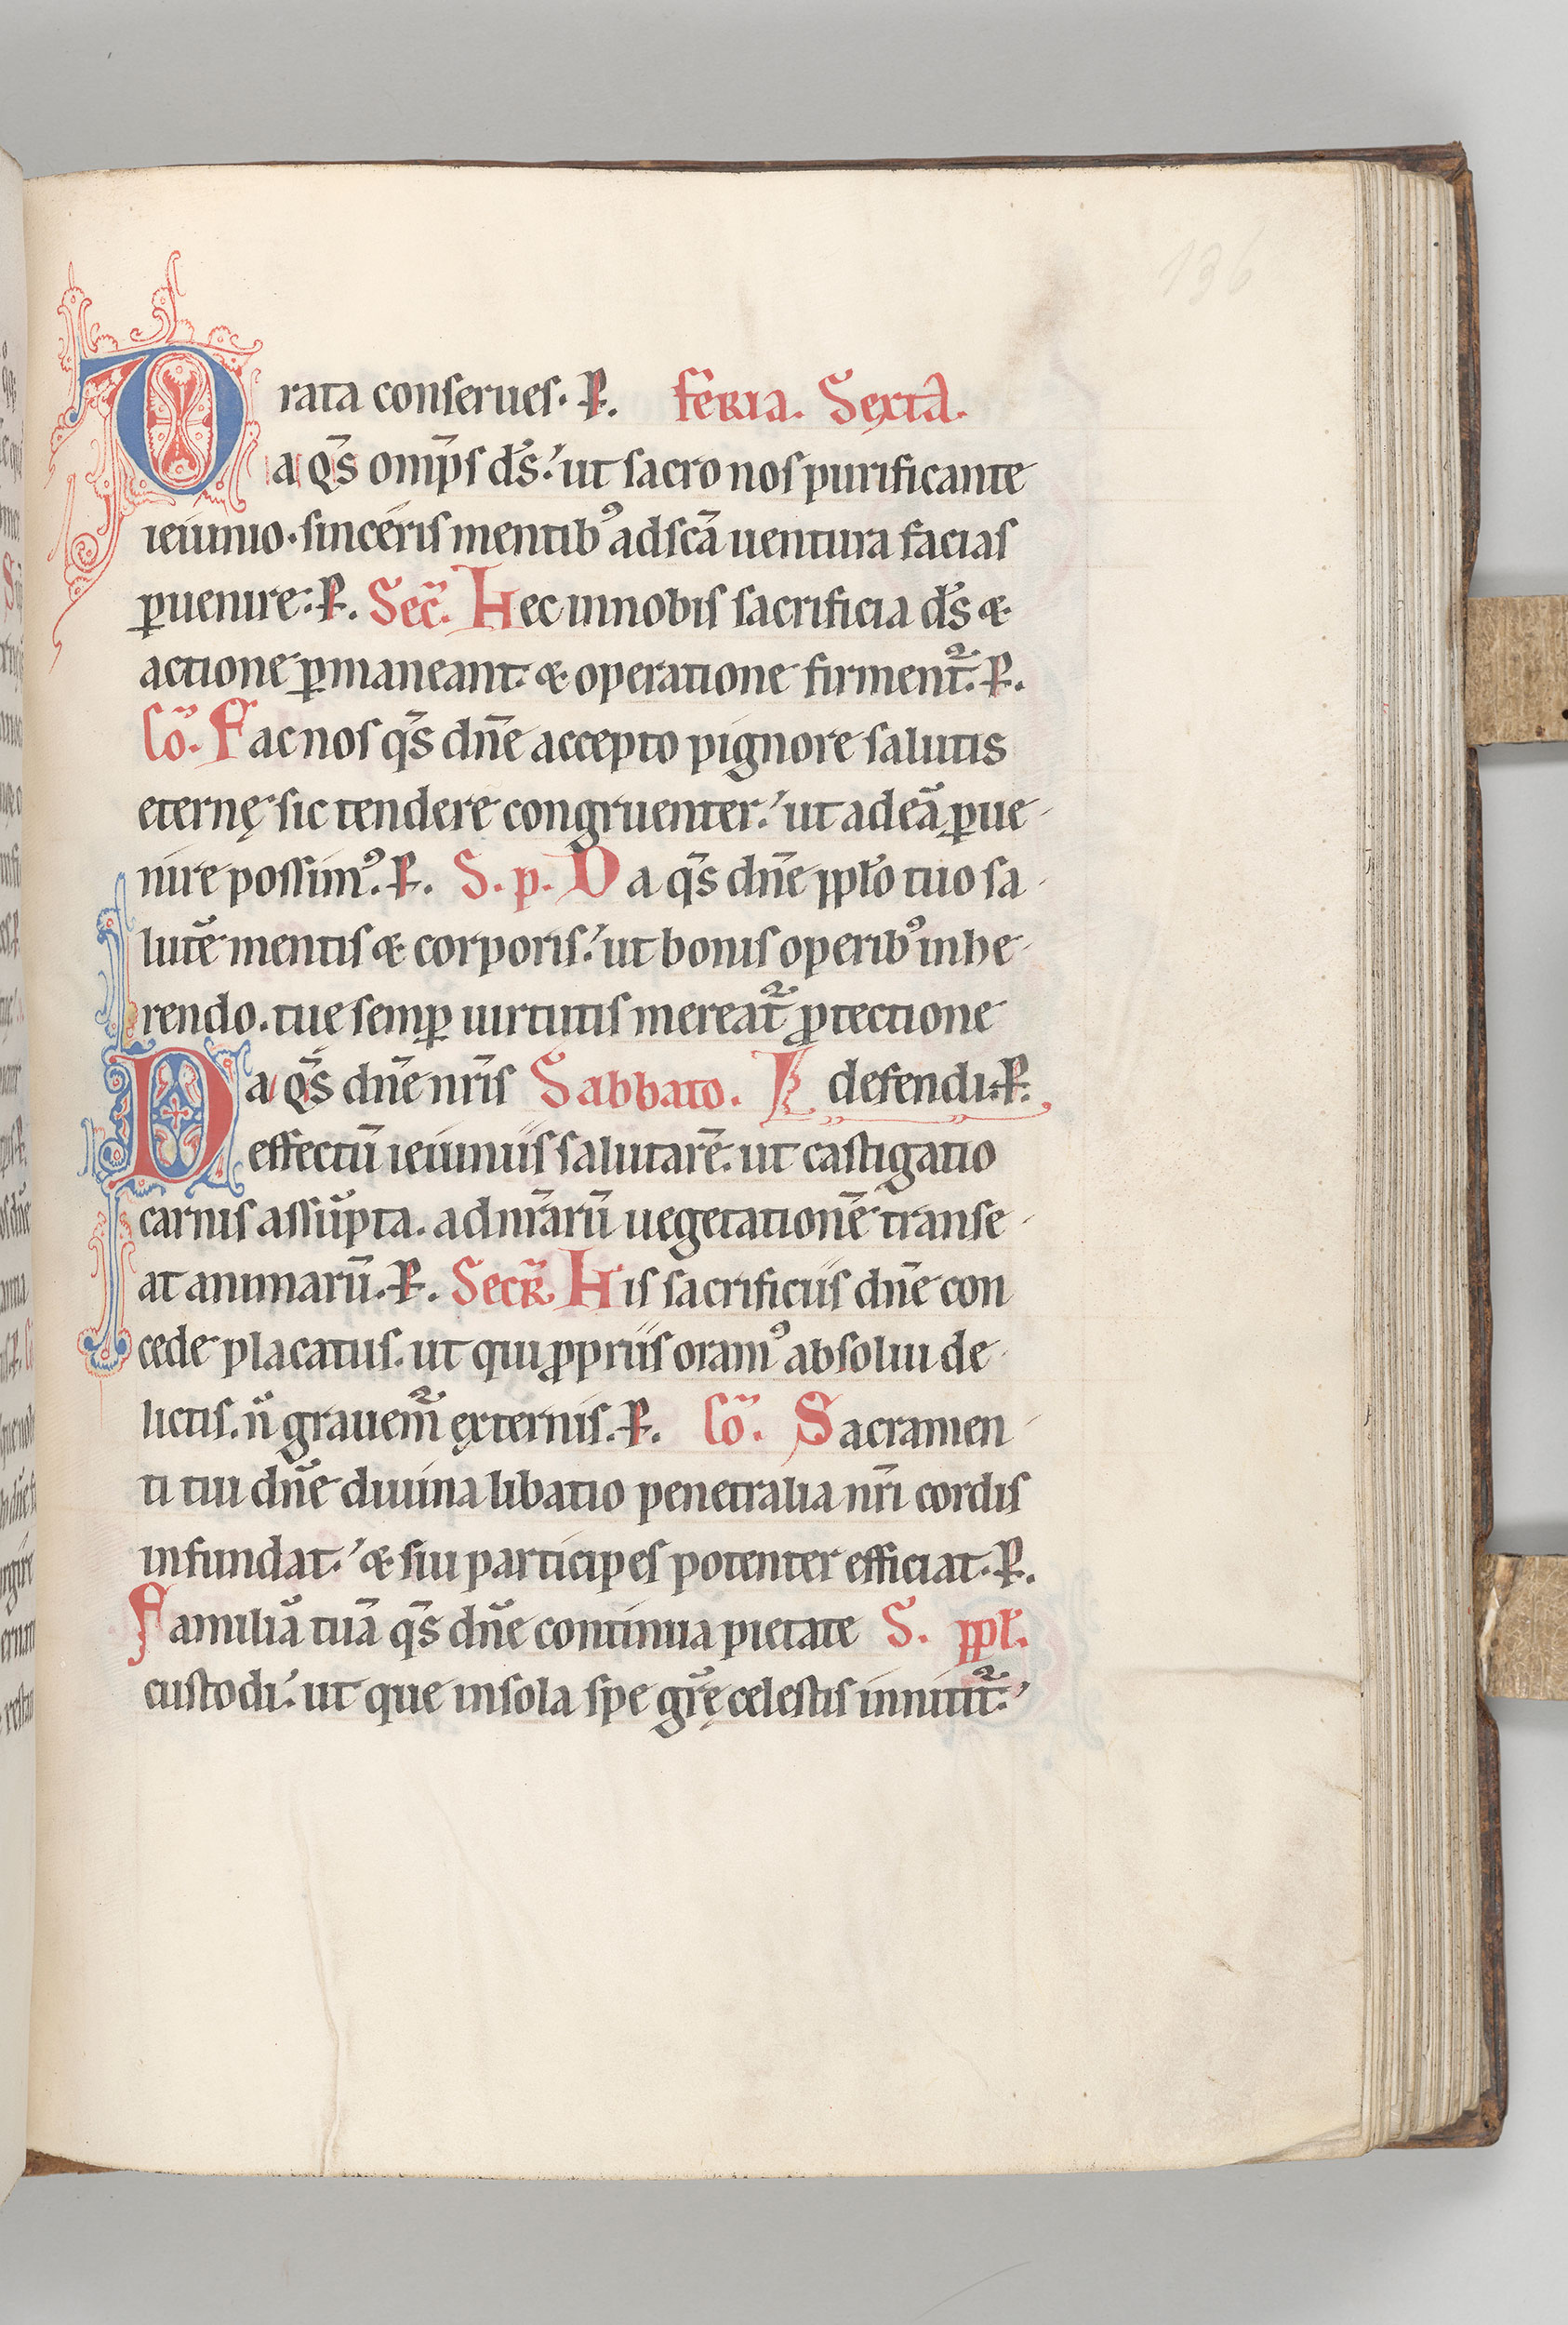 136
rata conserues. P. Feria. Sexta.
Da q̄s omp̄s ds̄. ut sacro nos purificante
ieiunio. sinceris mentibꝰ ad scā uentura facias
ꝑuenire. P. Sec̄. Hec in nobis sacrificia ds̄ &
actione ꝑmaneant. & operatione firment᷑. P.
Cō. Fac nos q̄s dn̄e accepto pignore salutis
eternę sic tendere congruenter. ut ad eā ꝑue-
nire possimꝰ. P. S. p. Da q̄s dn̄e ppl̄o tuo sa-
lutē mentis & corporis. ut bonis operibꝰ inhe-
rendo. tue semꝑ uirtutis mereat᷑ ꝓtectione
Da q̄s dn̄e nr̄is Sabbato. defendi. P.
effectū ieiuniis salutarē. ut castigatio
carnis assūpta. ad nr̄arū uegetationē transe-
at animarū. P. Secr̄. His sacrificiis dn̄e con
cede placatus. ut qui ꝓpriis oramꝰ absolui de-
lictis. n̄ grauem᷑ externis. P. Cō. Sacramen-
ti tui dn̄e diuina libatio penetralia nr̄i cordis
infundat. & sui participes potenter efficiat. P.
Familiā tuā q̄s dn̄e continua pietate S. ppl̄.
custodi. ut que in sola spe gr̄ę celestis innitit᷑.